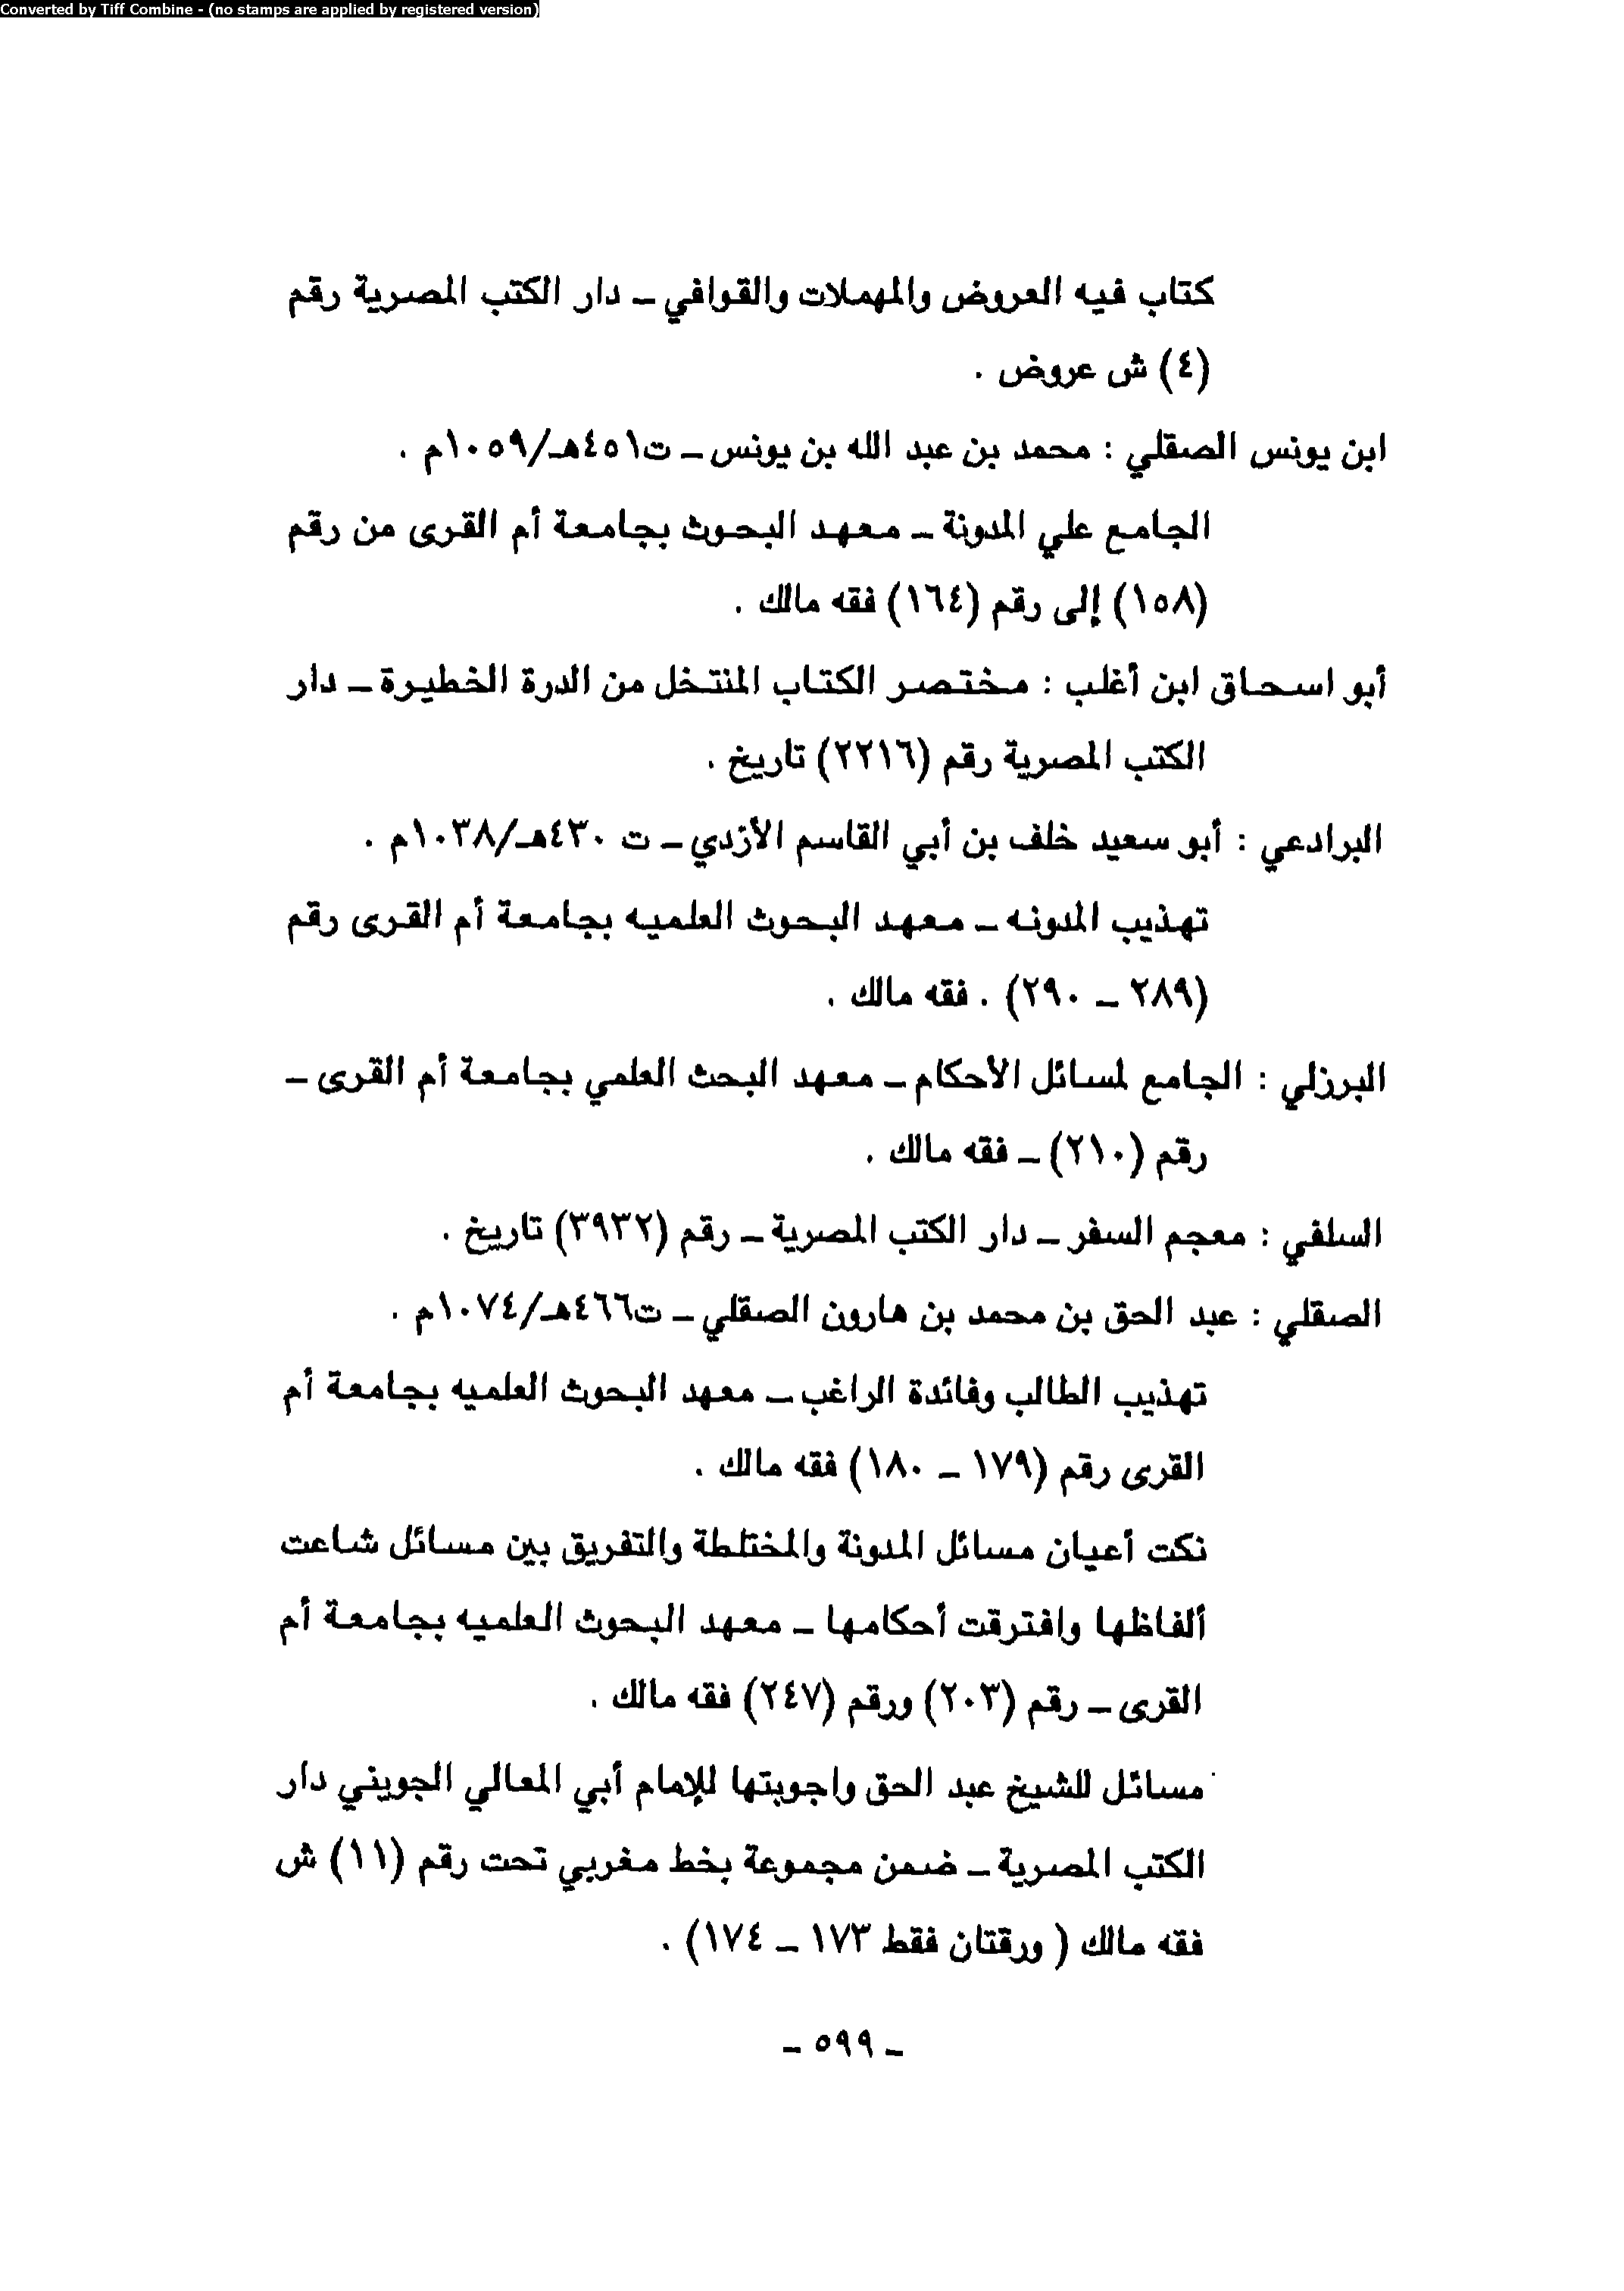 Converted by Tiff Combine - (no stamps are applied by registered version)
كتاب فيه العروض والمهملات والقوافي – دار الكتب المصرية رقم
(٤) ش عروض .
ابن يونس الصقلي : محمد بن عبد الله بن يونس – ت٤٥١هـ/١٠٥٩م .
الجامع علي المدونة – معهد البحوث بجامعة أم القرى من رقم
(١٥٨) إلى رقم (١٦٤) فقه مالك .
أبو اسحاق ابن أغلب : مختصر الكتاب المنتخل من الدرة الخطيرة – دار
الكتب المصرية رقم (٢٢١٦) تاريخ .
البرادعي : أبو سعيد خلف بن أبي القاسم الأزدي – ت ٤٣٠هـ/١٠٣٨م .
تهذيب المدونه – معهد البحوث العلميه بجامعة أم القرى رقم
(٢٨٩ – ٢٩٠) . فقه مالك .
البرزلي : الجامع لمسائل الأحكام – معهد البحث العلمي بجامعة أم القرى –
رقم (٢١٠) – فقه مالك .
السلفي : معجم السفر – دار الكتب المصرية – رقم (٣٩٣٢) تاريخ .
الصقلي : عبد الحق بن محمد بن هارون الصقلي – ت٤٦٦هـ/١٠٧٤م .
تهذيب الطالب وفائدة الراغب – معهد البحوث العلميه بجامعة أم
القرى رقم (١٧٩ – ١٨٠) فقه مالك .
نكت أعيان مسائل المدونة والمختلطة والتفريق بين مسائل شاعت
ألفاظها وافترقت أحكامها – معهد البحوث العلميه بجامعة أم
القرى – رقم (٢٠٣) ورقم (٢٤٧) فقه مالك .
مسائل للشيخ عبد الحق واجوبتها للإمام أبي المعالي الجويني دار
الكتب المصرية – ضمن مجموعة بخط مغربي تحت رقم (١١) ش
فقه مالك ( ورقتان فقط ١٧٣ – ١٧٤) .
– ٥٩٩ –